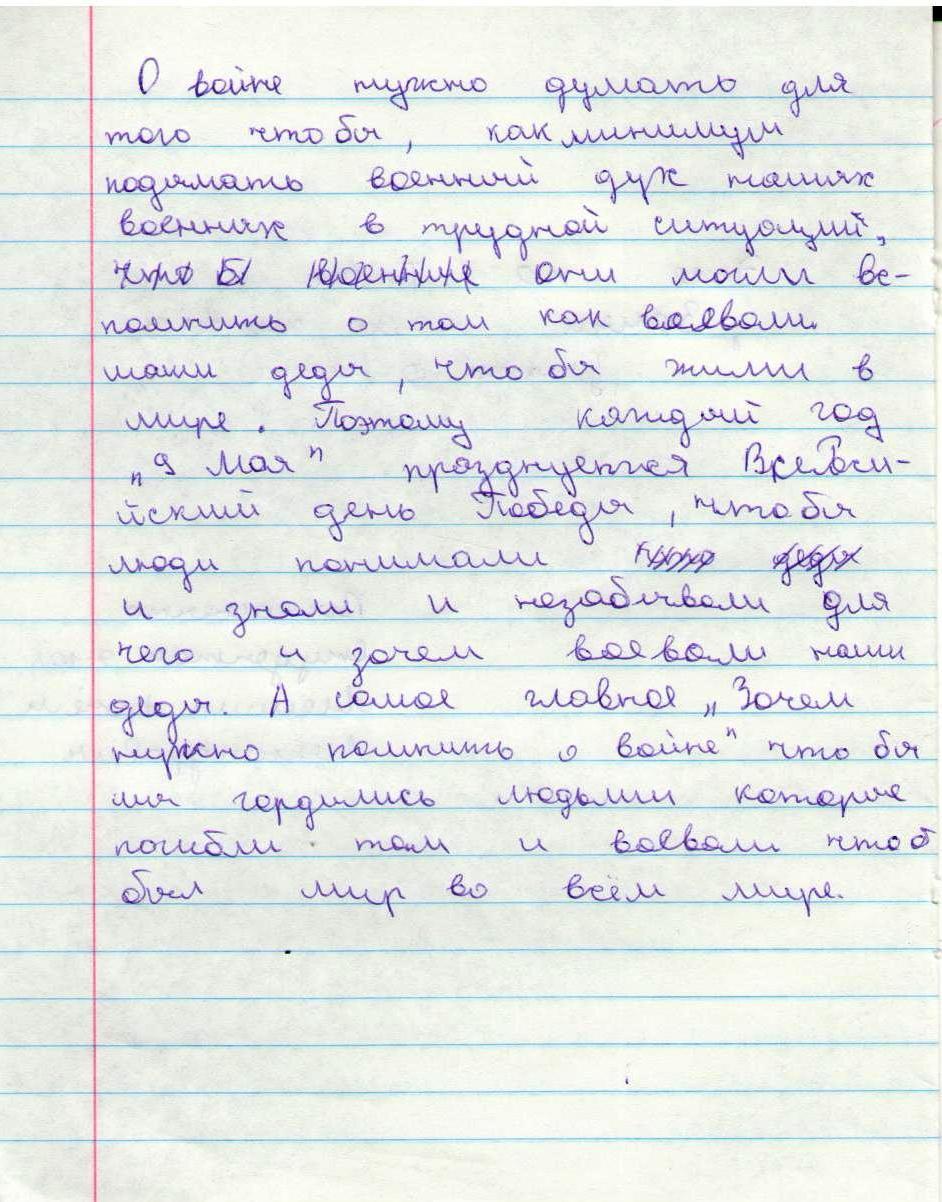 О войне нужно думать для
того что бы, как минимум
подимать военный дух наших
военных в трудной ситуаций,
что б военные они могли вс-
помнить о том как воевали
наши деды, что бы жили в
мире. Поэтому каждый год
„9 Мая" празднуется Всеросси-
йский день Победы, что бы
люди понимали деды
и знали и незабывали для
чего и зачем воевали наши
деды. А самое главное „Зачем
нужно помнить о войне" что бы
мы гордились людьми которые
погибли там и воевали чтоб
был мир во всём мире.